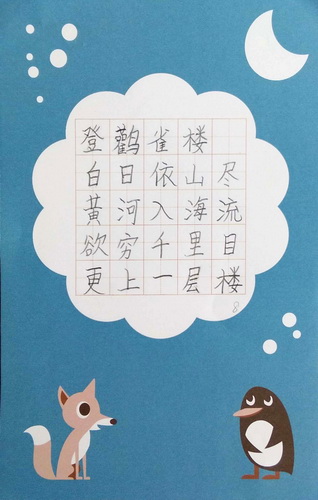 登鹳雀楼
白日依山尽
黄河入海流
欲穷千里目
更上一层楼
8